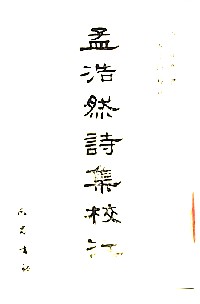 孟浩然詩集校注
巴蜀書社